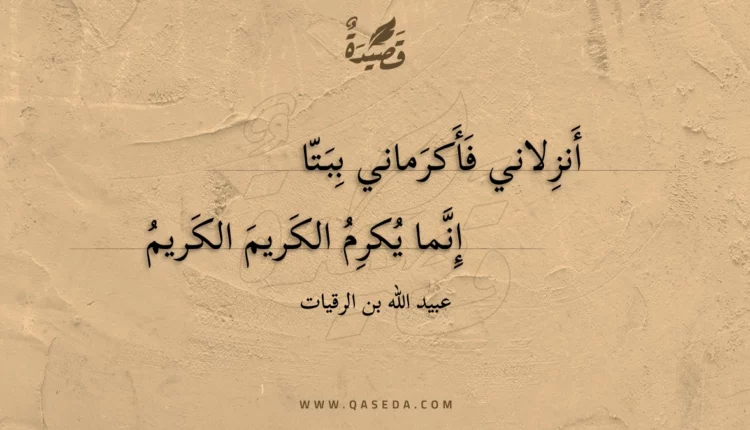 قَصِيْدَةٌ
أَنزِلاني فَأَكرَماني بِبَتّا
إِنَّما يُكرِمُ الكَريمَ الكَريمُ
عبيد الله بن الرقيات
WWW.QASEDA.COM